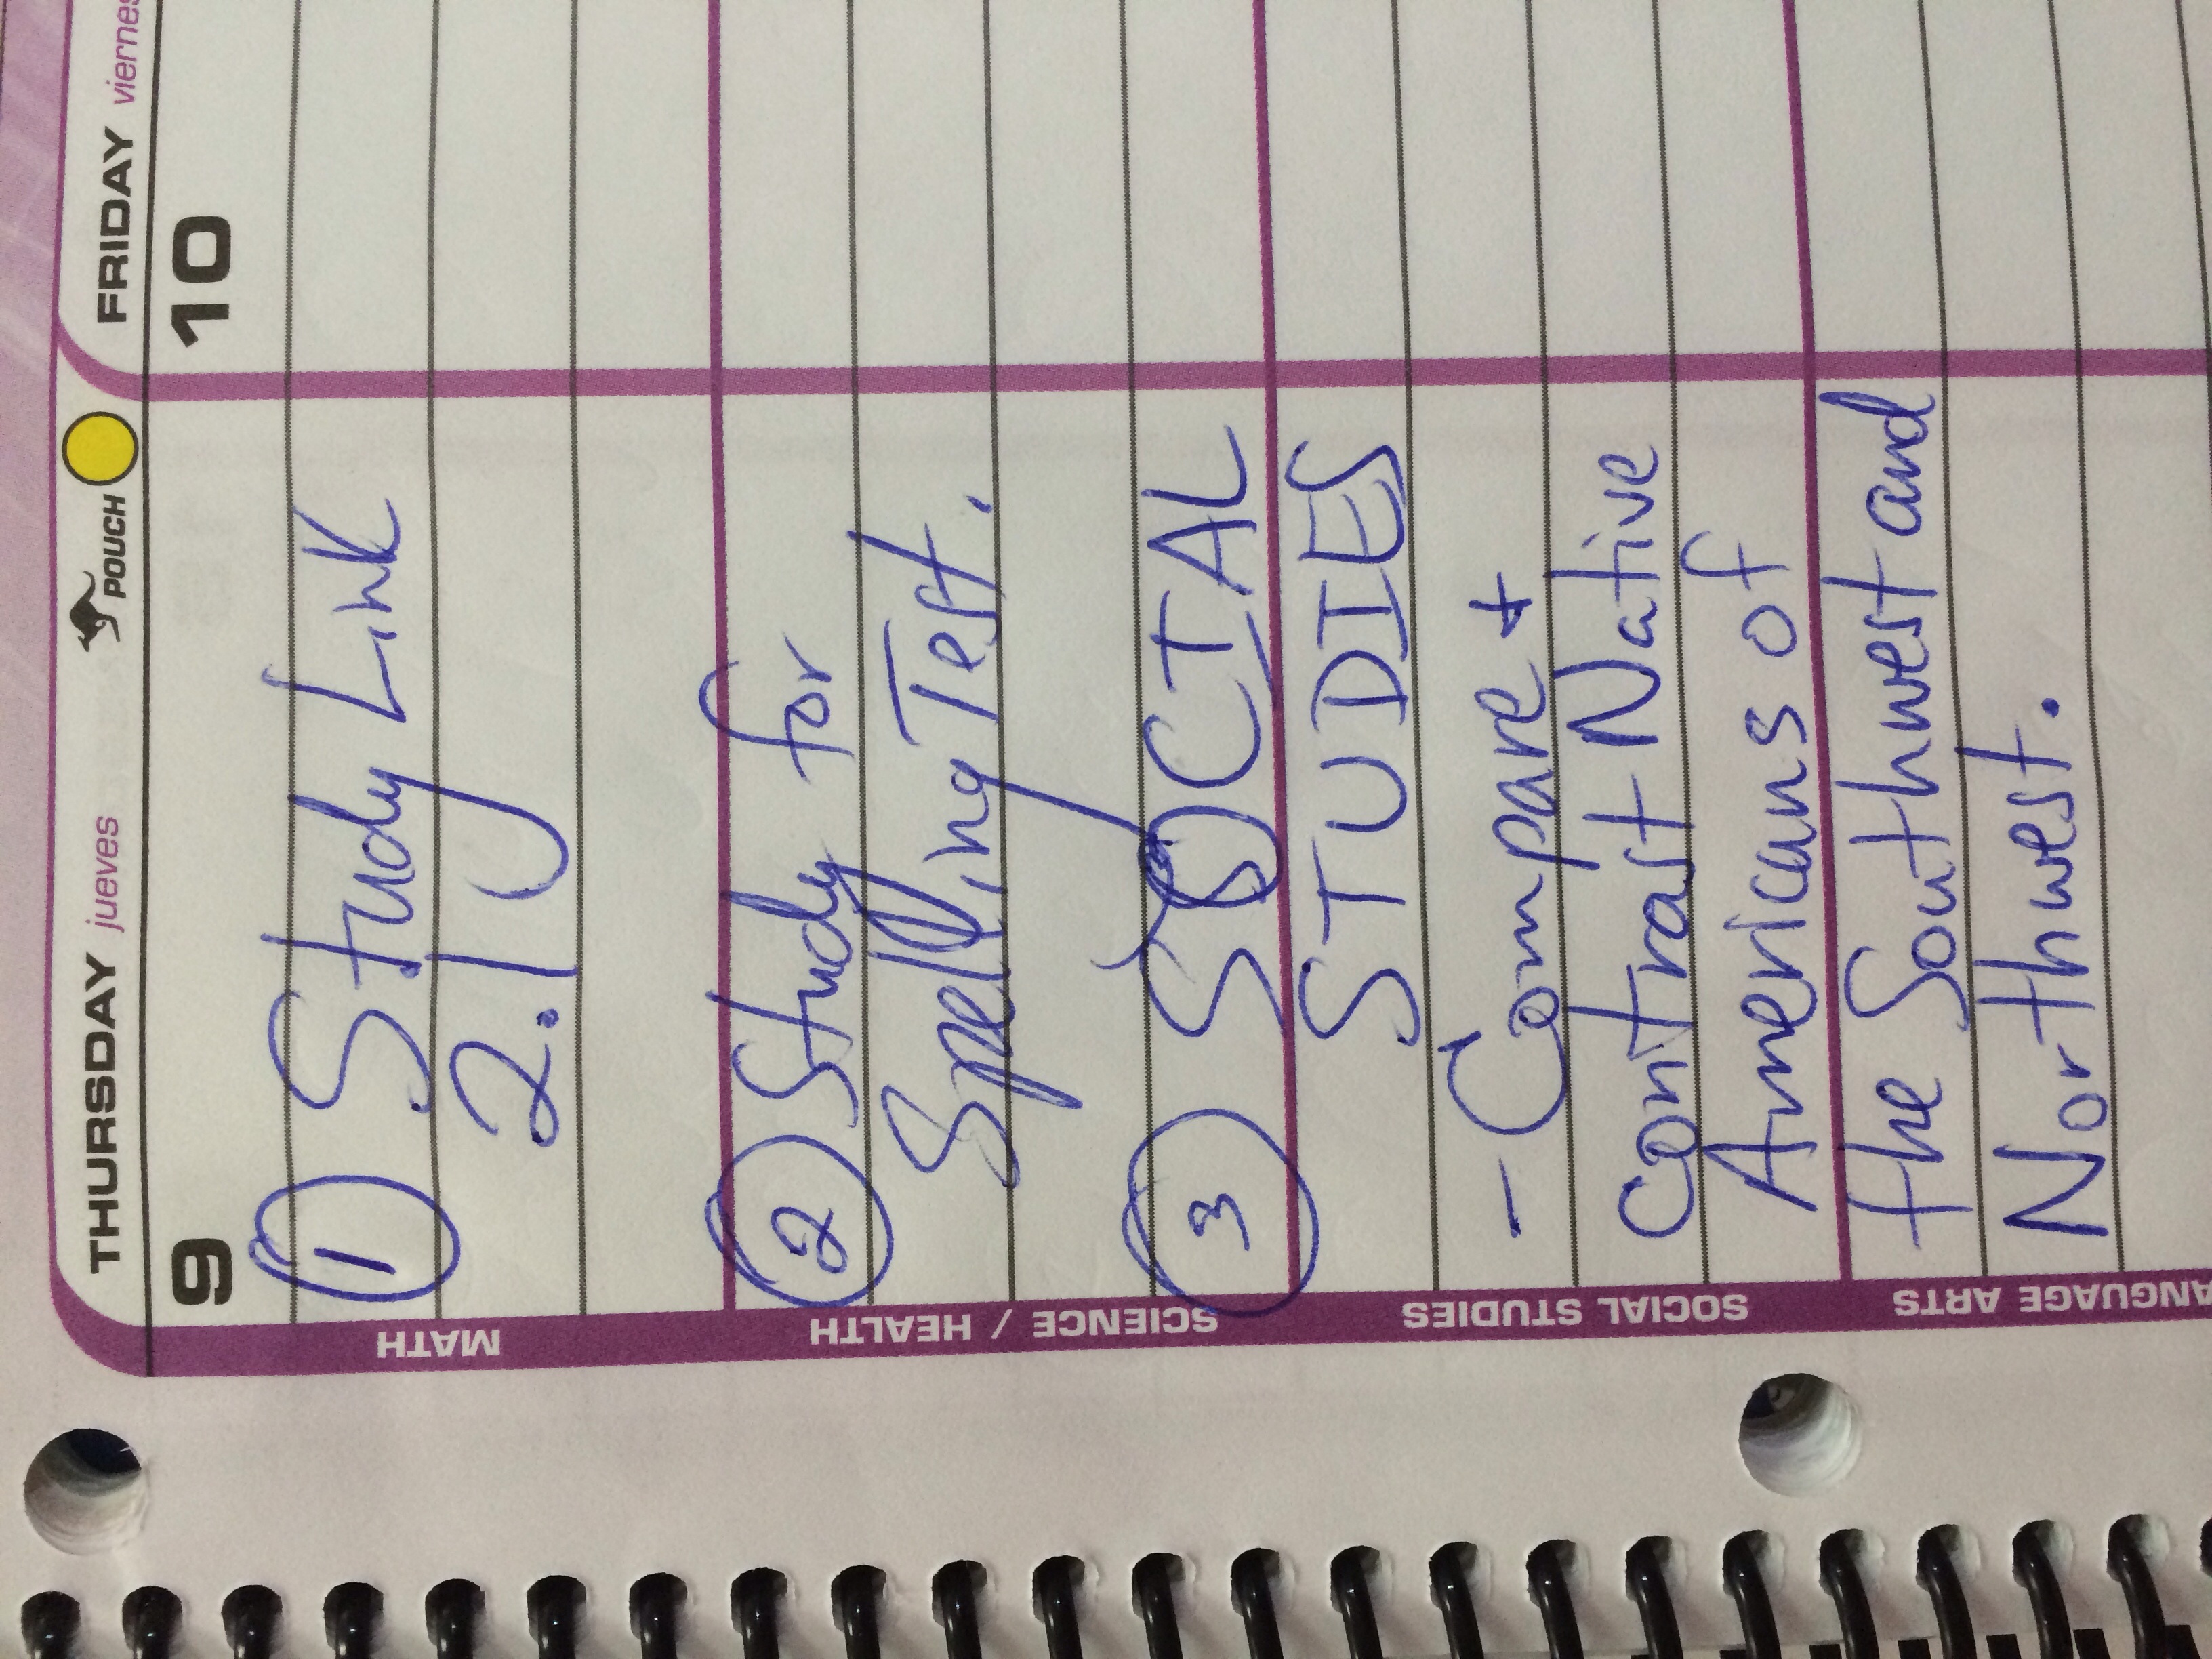 THURSDAY jueves
POUCH
FRIDAY viernes
9
10
MATH
① Study Link
2.1
② Study for
Spelling Test.
SCIENCE / HEALTH
③ SOCIAL
STUDIES
SOCIAL STUDIES
- Compare +
Contrast Native
Americans of
the Southwest and
Northwest.
ANGUAGE ARTS